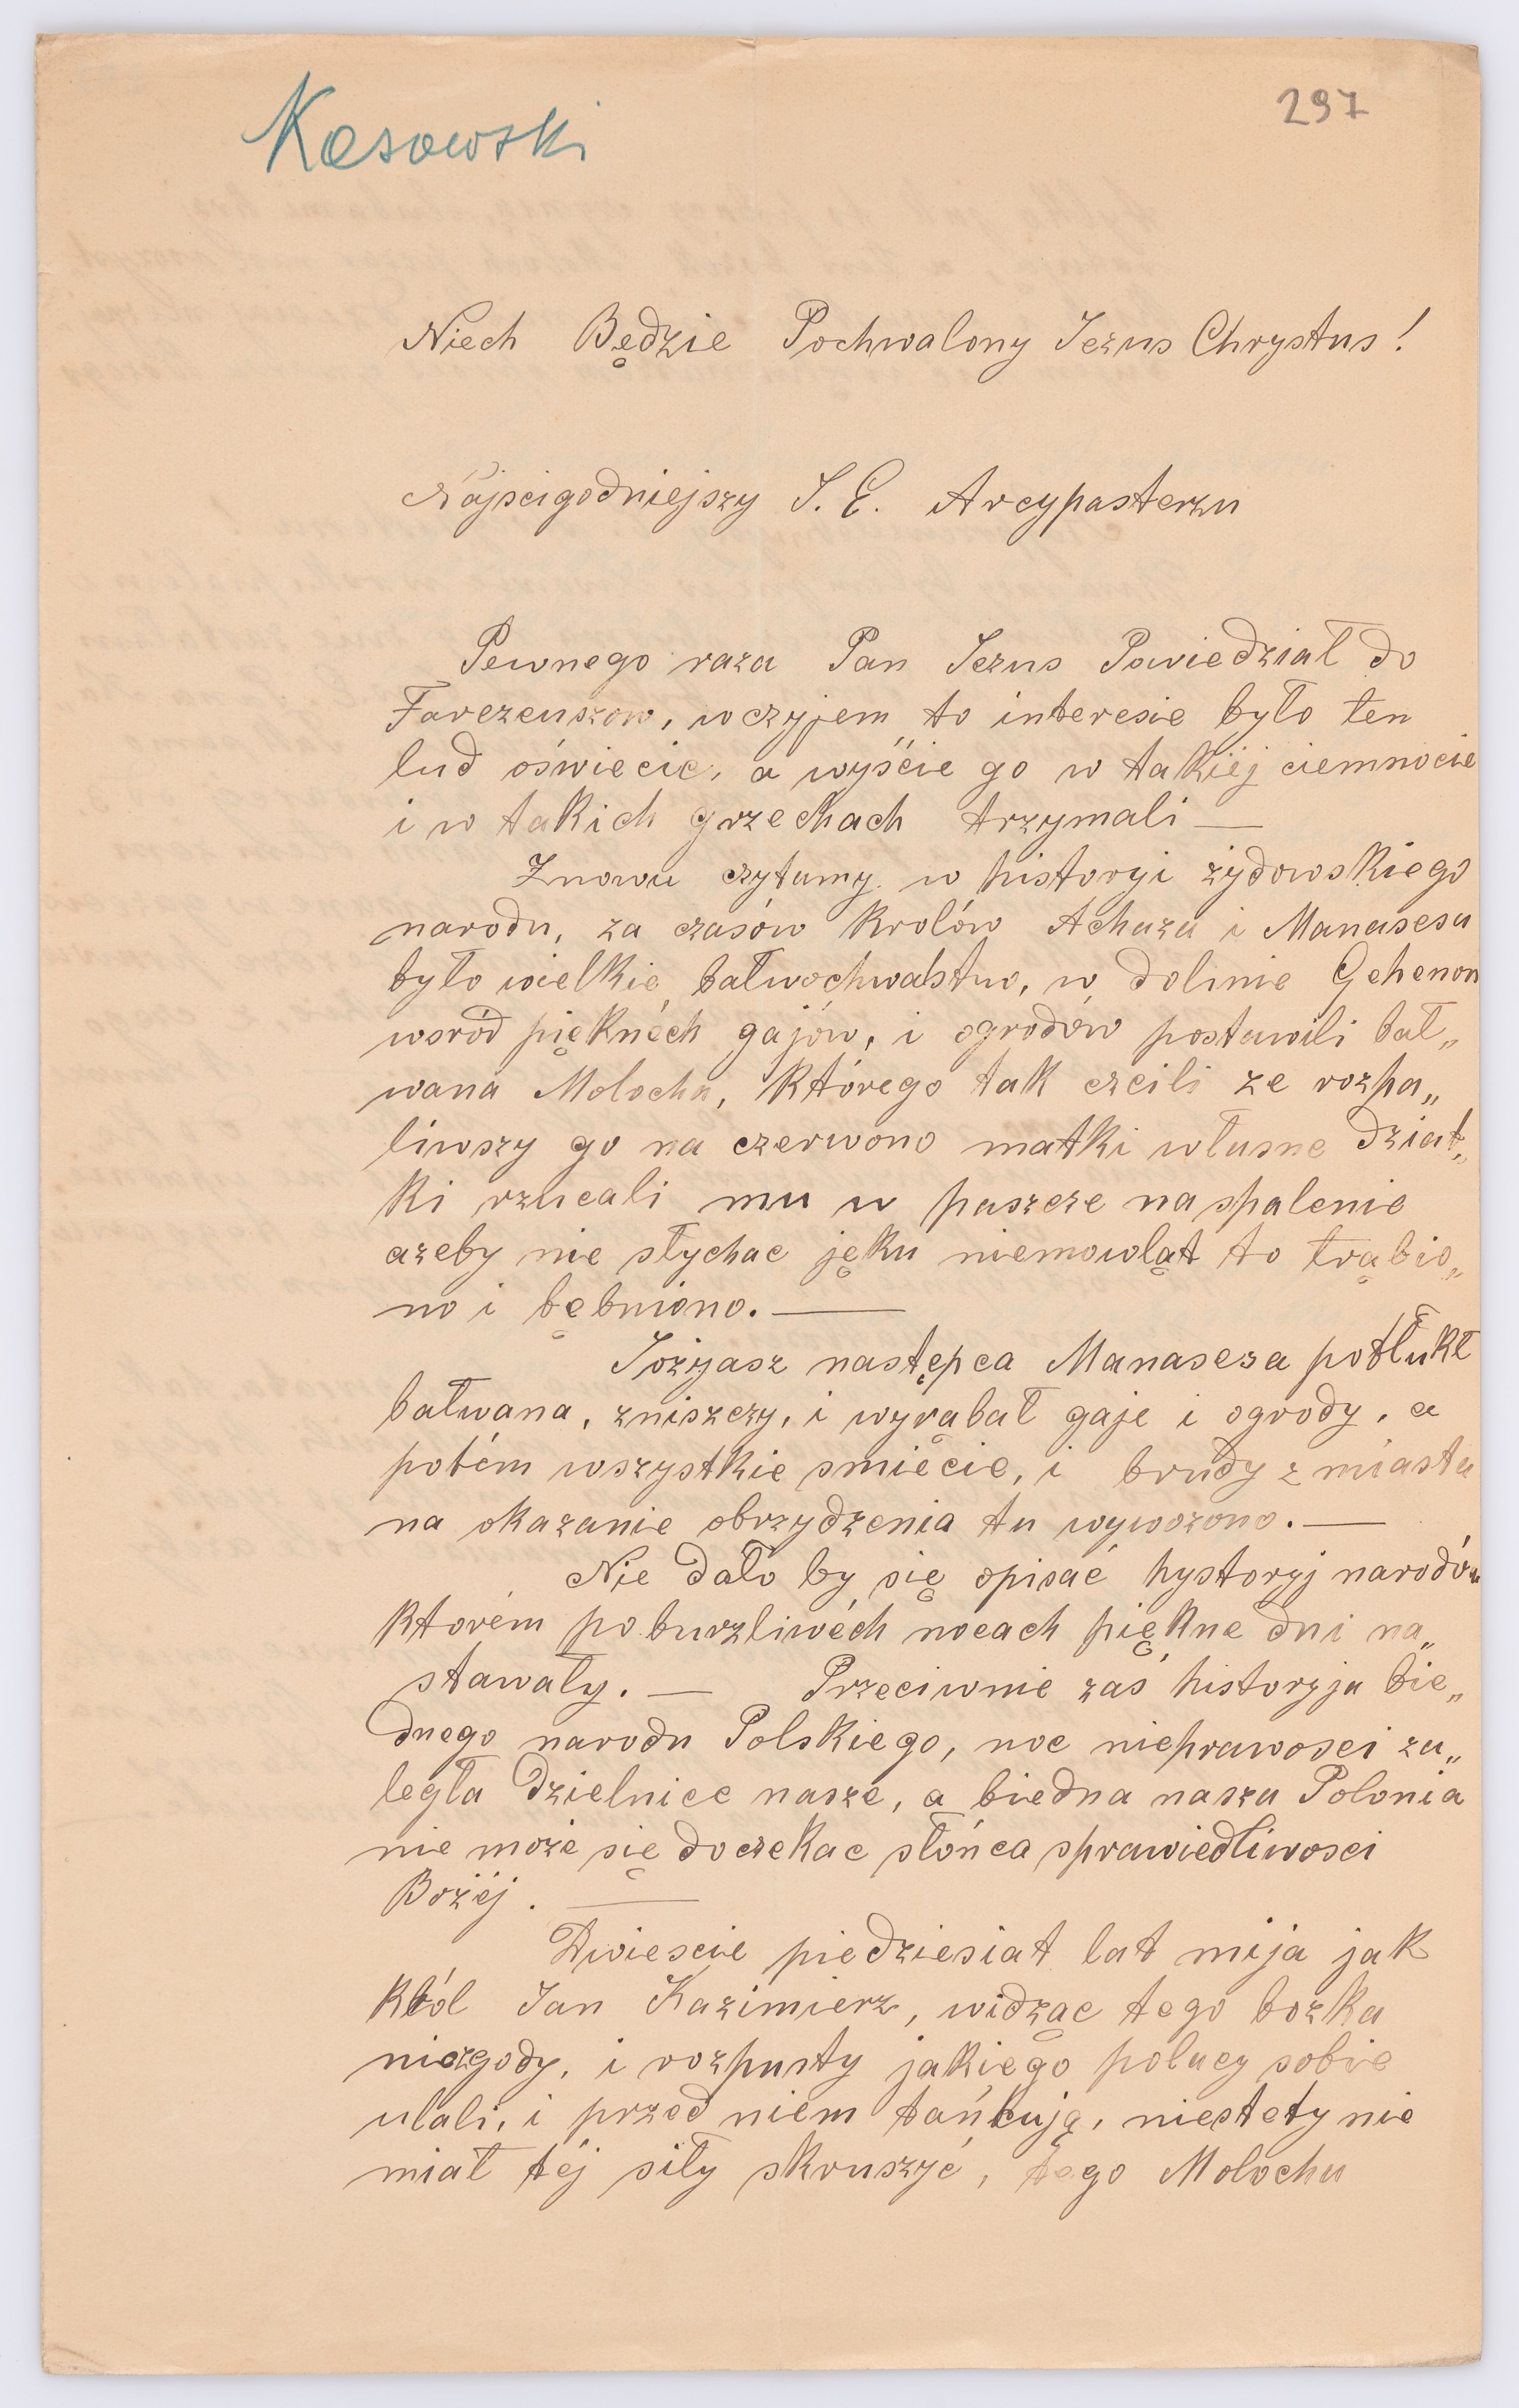 Kosowski
297
Niech Będzie Pochwalony Jezus Chrystus!
Najscigodniejszy J. E. Arcypasterzu
Pewnego raza Pan Jezus Powiedział do
Farezeuszow, w czyjem to interesie było ten
lud oświecic, a wyście go w takiéj ciemnocie
i w takich grzechach trzymali —
Znowu czytamy w historyi żydowskiego
narodu, za czasów Krolów Achaza i Manasesa
było wielkie bałwochwalstwo, w dolinie Gehenon
wsród pięknéch gajów, i ogrodów postawili bał„
wana Molocha, Którego tak czcili ze rozpa„
liwszy go na czerwono matki własne dziat„
ki rzucali mu w paszcze na spalenie
azeby nie słychac jęku niemowląt to trąbio„
no i bębniono. —
Jozyasz następca Manaseza potłukł
bałwana, zniszczy, i wyrąbał gaje i ogrody, a
potém wszystkie smiécie, i brudy z miasta
na okazanie obrzydzenia tu wywozono. —
Nie dało by się opisać hystoryj narodów
Ktorém po burzliwéch nocach piękne dni na„
stawały. — Przeciwnie zaś historyja bie„
dnego narodu Polskiego, noc nieprawosci za„
legła dzielnice nasze, a biedna nasza Polonia
nie może się doczekac słónca sprawiedliwosci
Bożéj. —
Dwiescie piedziesiat lat mija jak
Król Jan Kazimierz, widząc tego bozka
niezgody, i rozpusty jakiego polacy sobie
ulali, i przed niem tańcują, niestety nie
miał téj siły skruszyć, tego Molochu